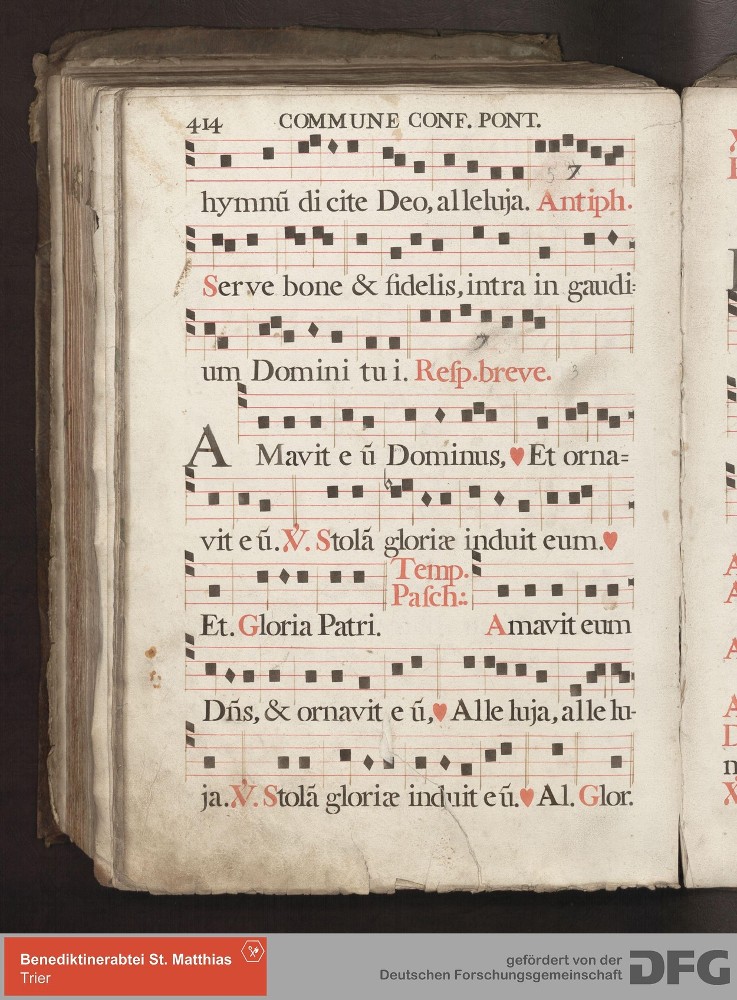 414 COMMUNE CONF. PONT.
5 7
hymnũ dicite Deo, alleluja. Antiph.
Serve bone & fidelis, intra in gaudi:
7
um Domini tui. Reſp. breve. 3
AMavit eũ Dominus, ♥ Et orna=
vit eũ. ℣. Stolã gloriæ induit eum. ♥
Temp.
Paſch::
Et. Gloria Patri. Amavit eum
Dñs, & ornavit eũ, ♥ Alleluja, allelu-
ja. ℣. Stolã gloriæ induit eũ. ♥ Al. Glor.
Benediktinerabtei St. Matthias
Trier
gefördert von der
Deutschen Forschungsgemeinschaft DFG